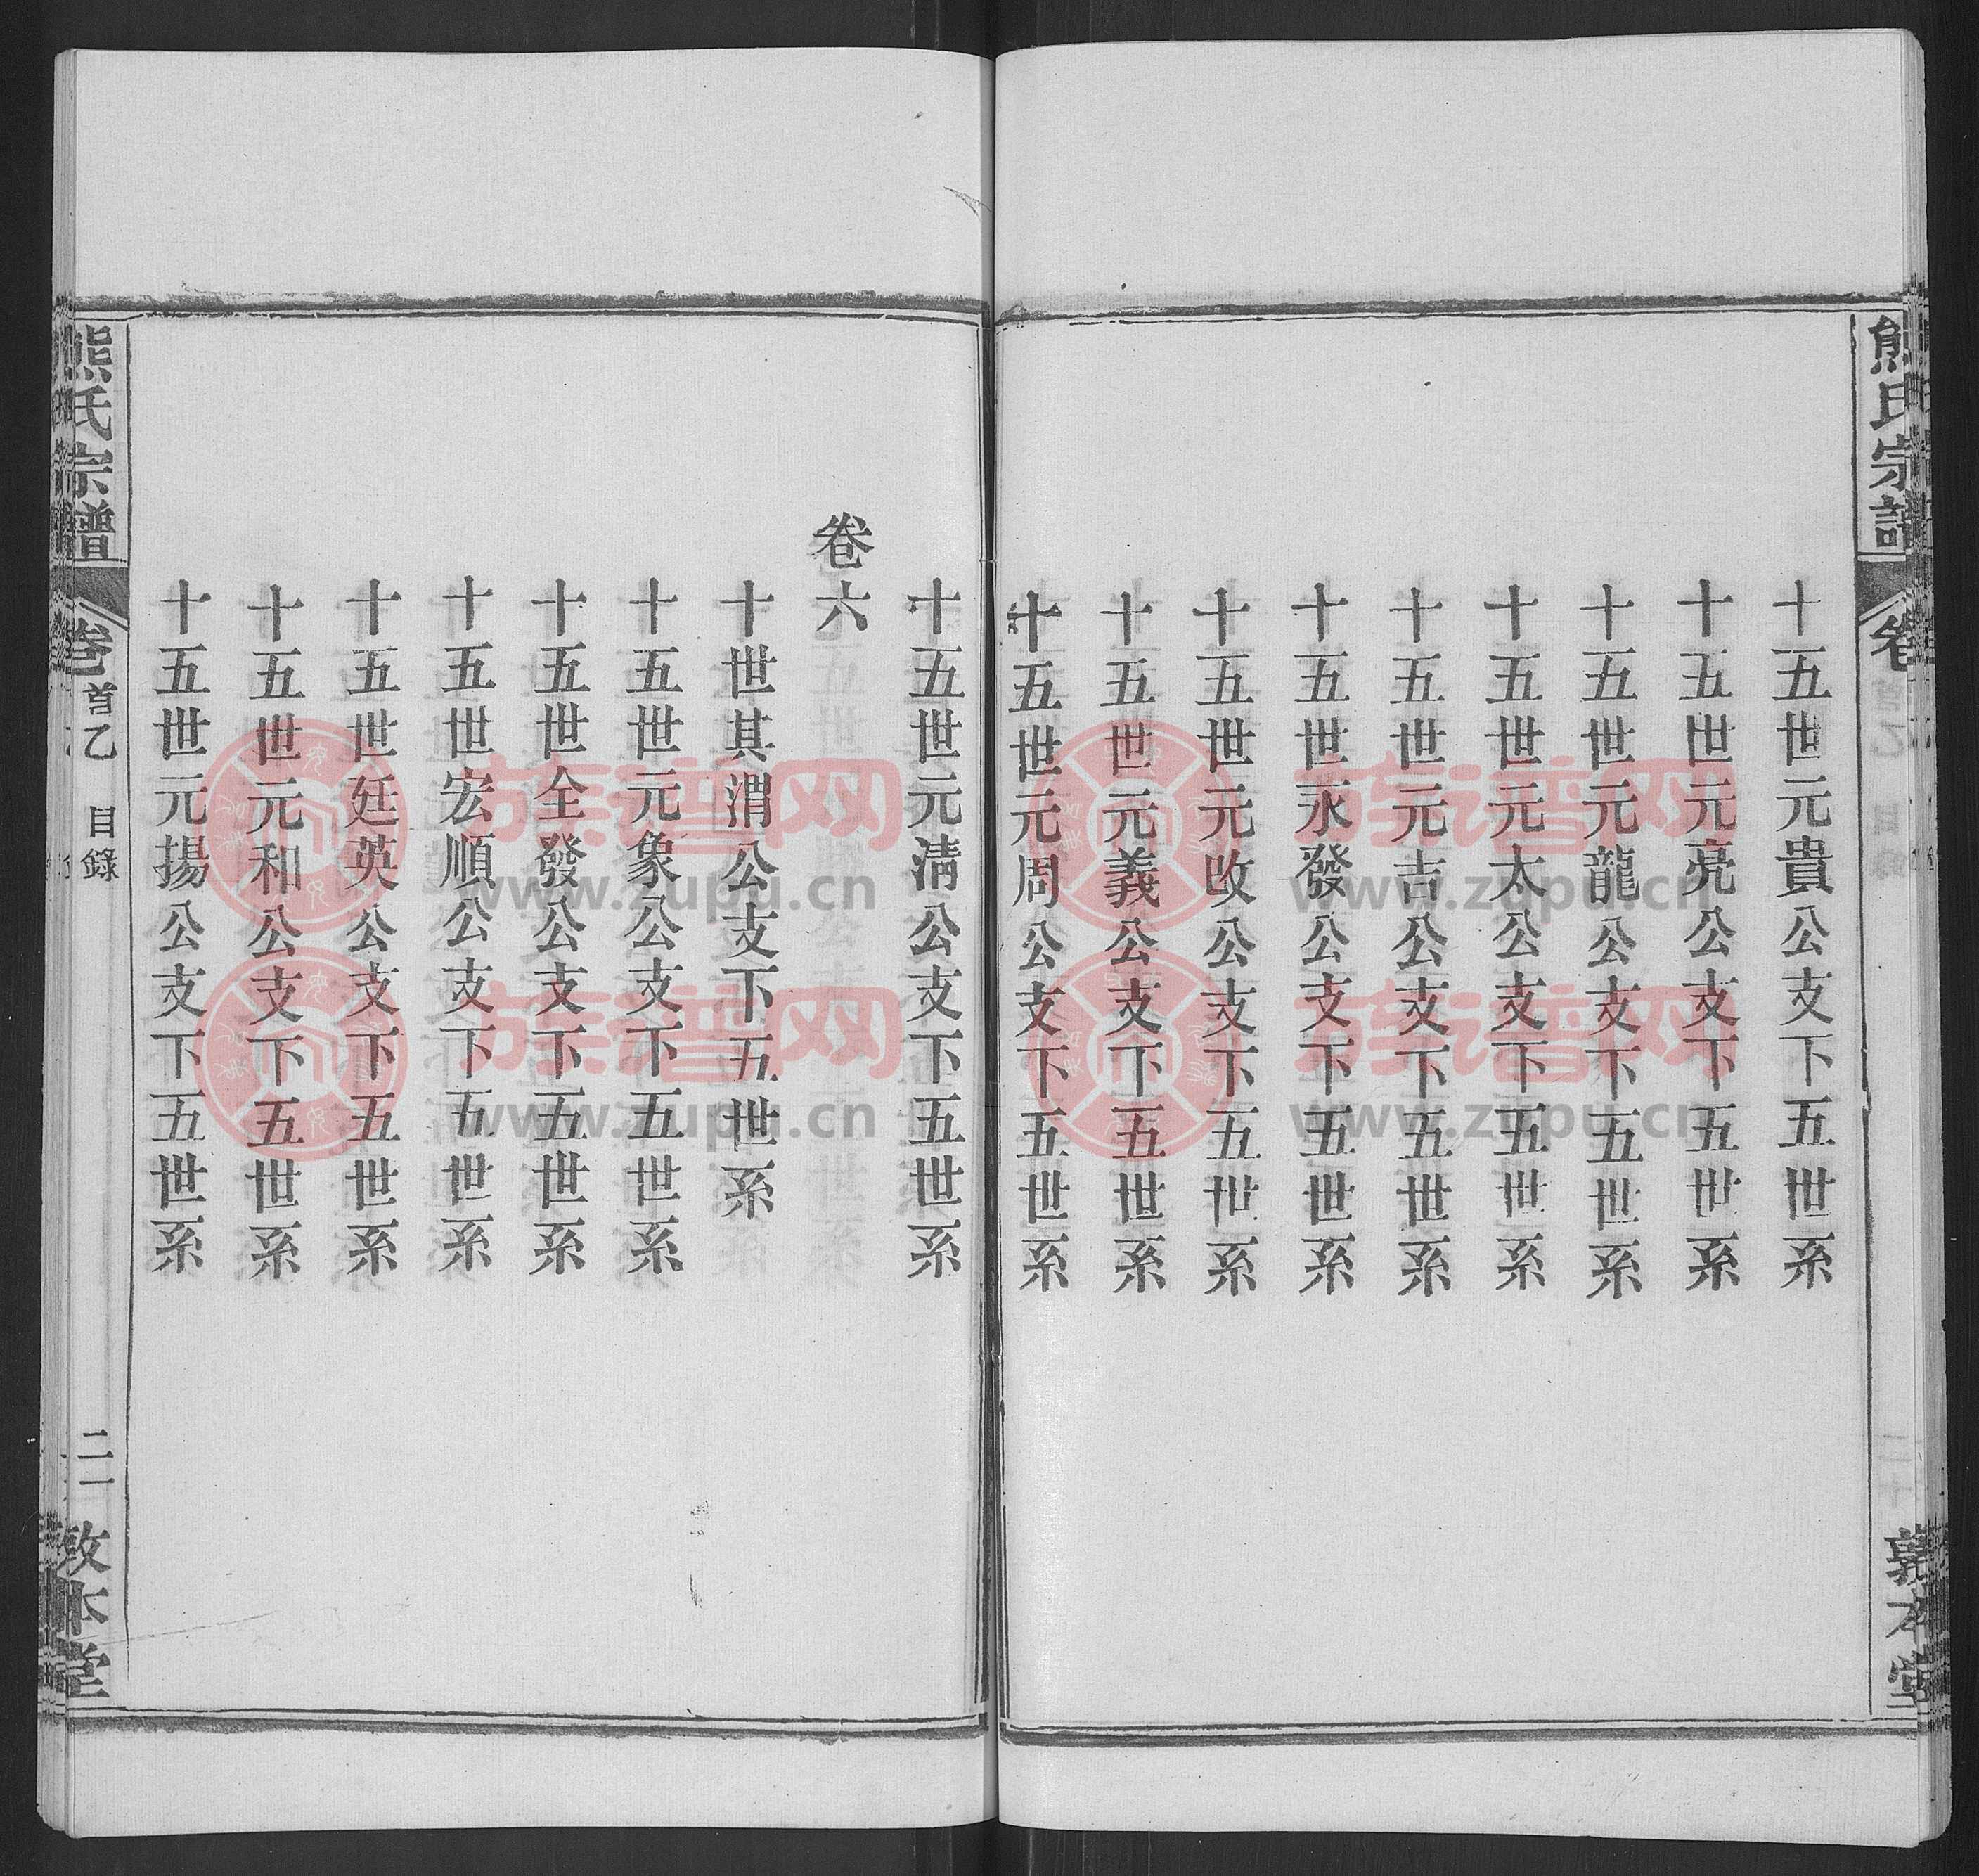 熊氏宗譜
卷
十五世元貴公支下五世系
十五世元亮公支下五世系
十五世元龍公支下五世系
十五世元太公支下五世系
十五世元吉公支下五世系
十五世永發公支下五世系
十五世元改公支下五世系
十五世元義公支下五世系
十五世元周公支下五世系
十五世元清公支下五世系
卷六
十世其渭公支下五世系
十五世元象公支下五世系
十五世全發公支下五世系
十五世宏順公支下五世系
十五世廷英公支下五世系
十五世元和公支下五世系
十五世元揚公支下五世系
熊氏宗譜
卷首乙 目錄
二一
敦本堂
族譜网
www.zupu.cn
族譜网
www.zupu.cn
族譜网
www.zupu.cn
族譜网
www.zupu.cn